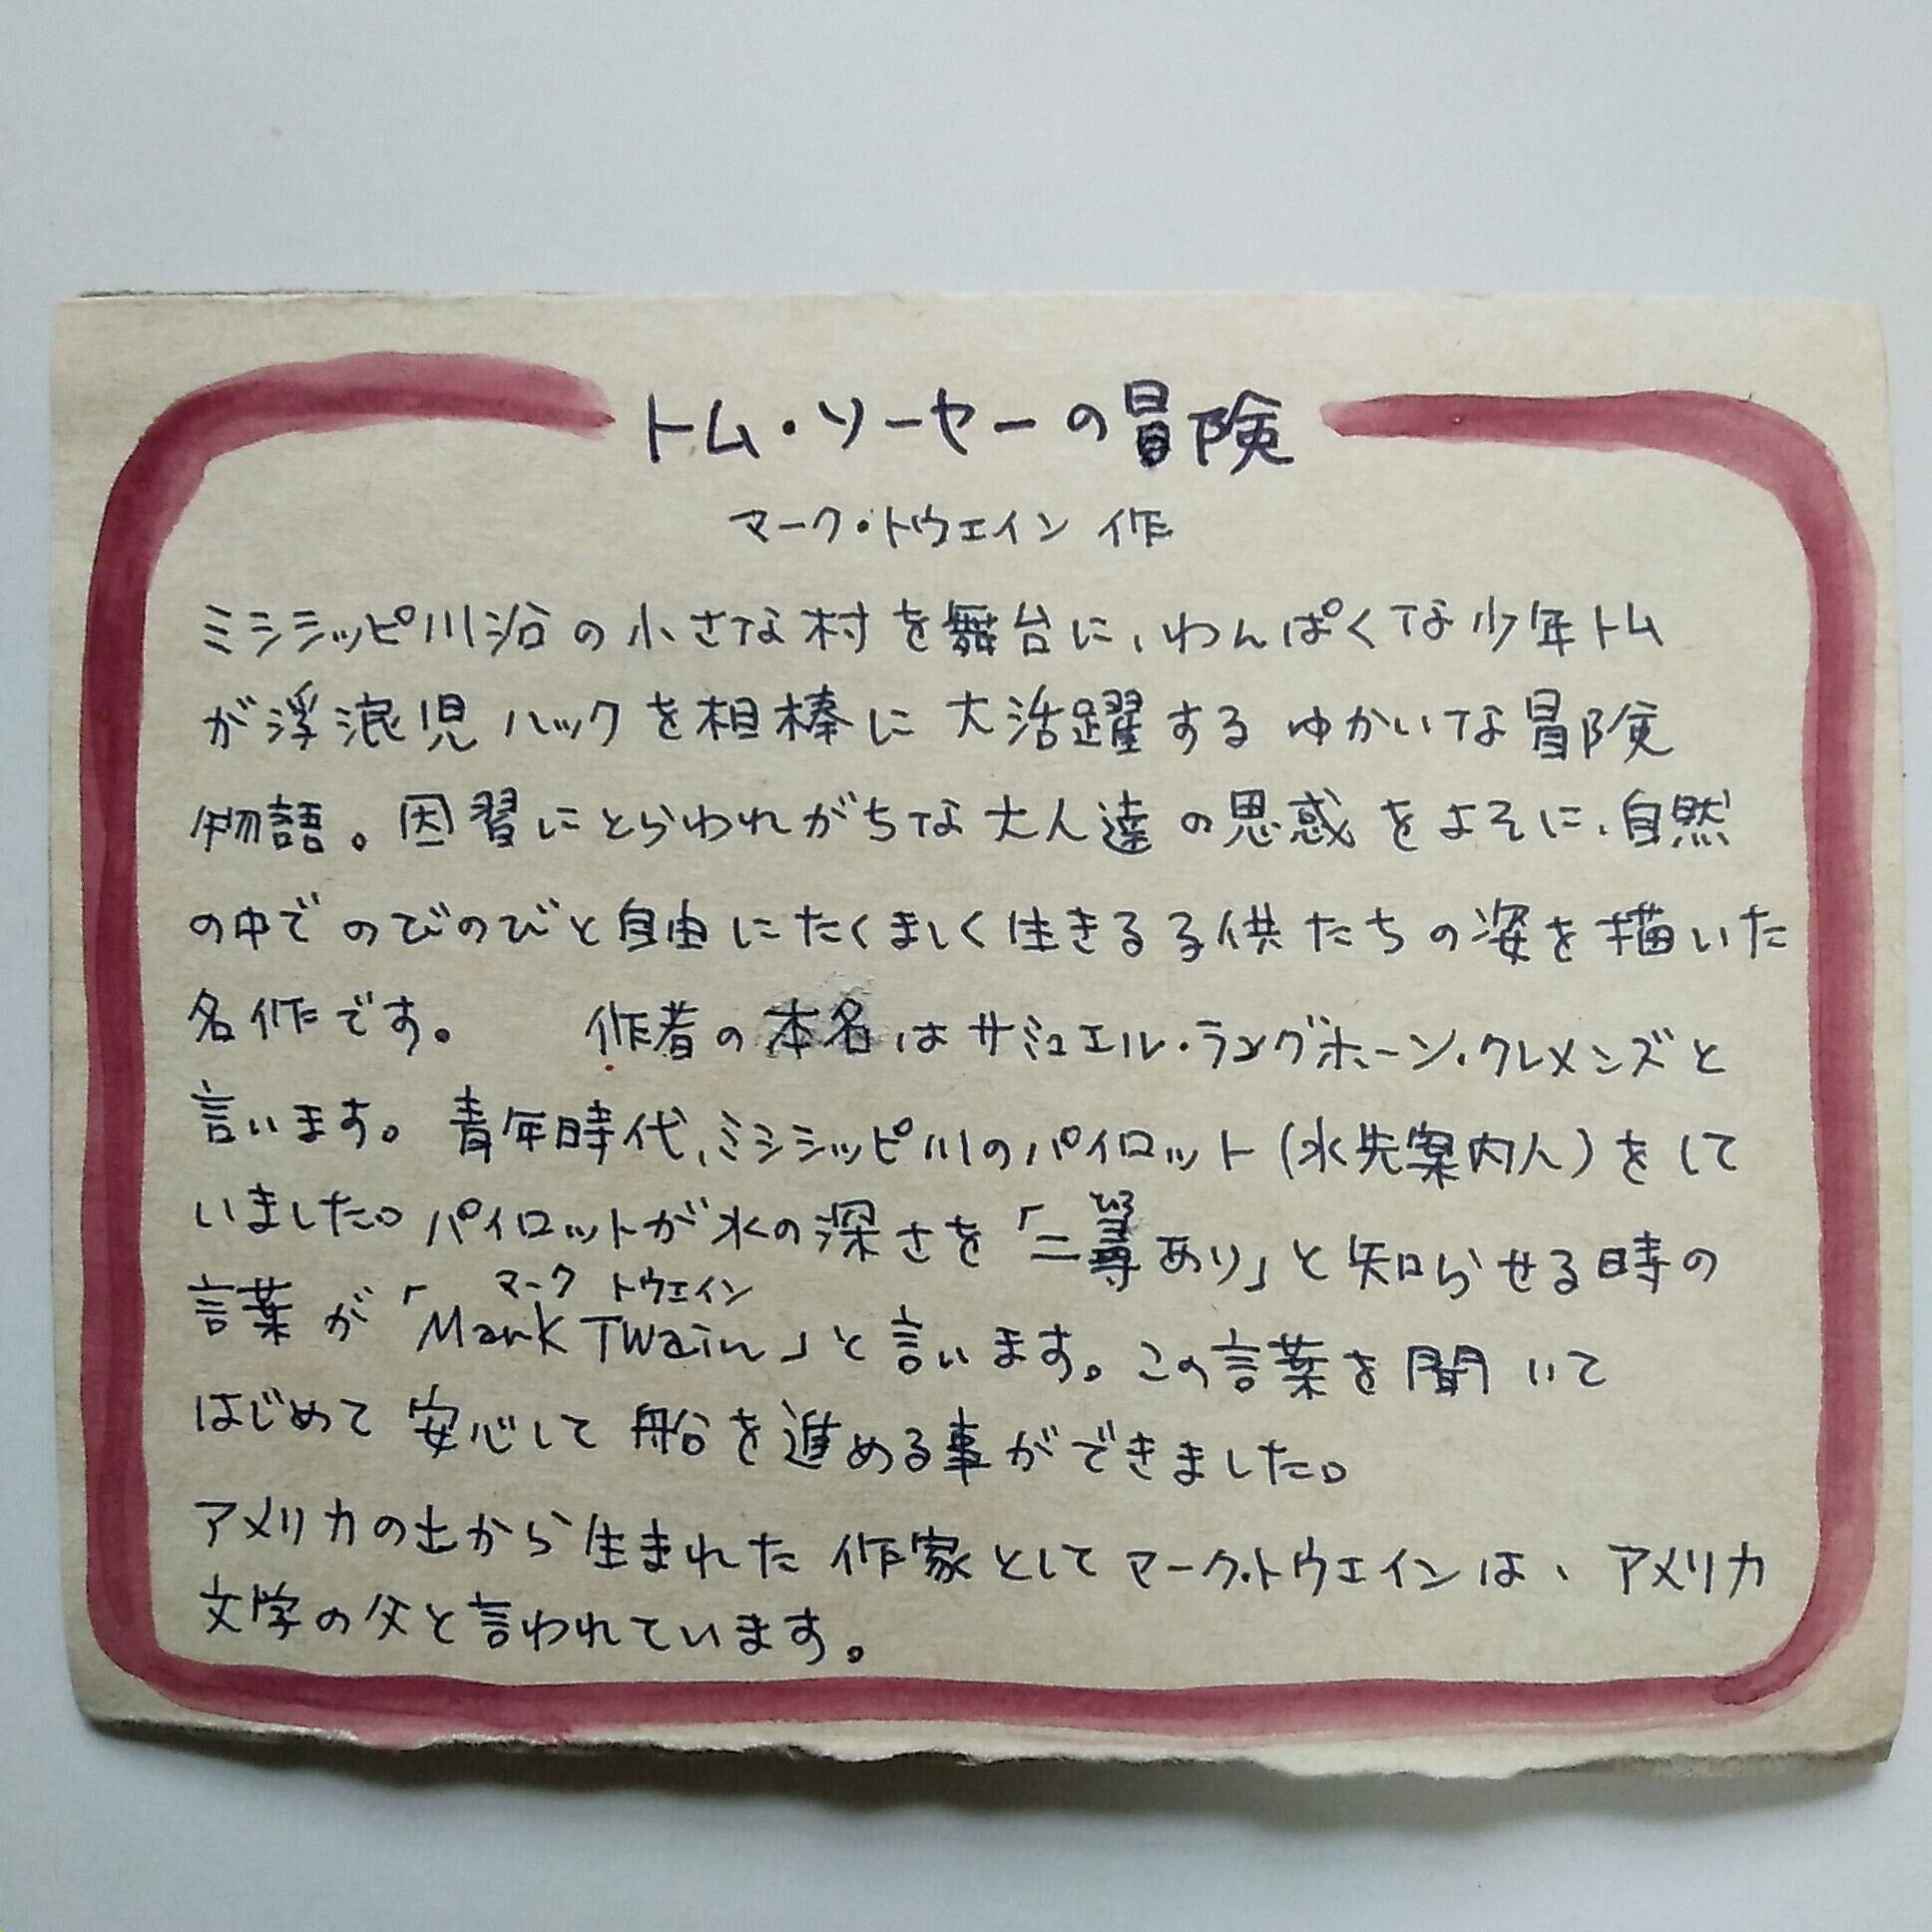 トム・ソーヤーの冒険
マーク・トウェイン 作
ミシシッピ川沿の小さな村を舞台に、わんぱくな少年トム
が浮浪児ハックを相棒に大活躍するゆかいな冒険
物語。因習にとらわれがちな大人達の思惑をよそに、自然
の中でのびのびと自由にたくましく生きる子供たちの姿を描いた
名作です。 作者の本名はサミュエル・ラングホーン・クレメンズと
言います。青年時代、ミシシッピ川のパイロット(水先案内人)をして
いました。パイロットが水の深さを「二尋あり」と知らせる時の
ひろ
言葉が「Mark Twain」と言います。この言葉を聞いて
マーク トウェイン
はじめて安心して船を進める事ができました。
アメリカの土から生まれた作家としてマーク・トウェインは、アメリカ
文学の父と言われています。